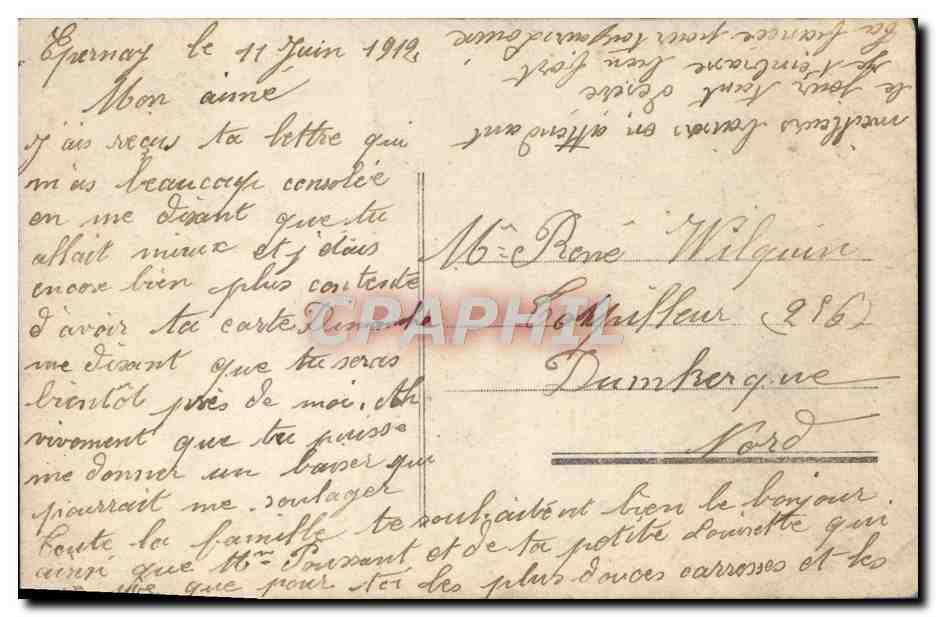 Epernay le 11 Juin 1912
Mon aimé
J'ais reçus ta lettre qui
m'as beaucoup consolée
en me disant que tu
allait mieux et j'étais
encore bien plus contente
d'avoir ta carte Dimanche
me disant que tu seras
bientôt près de moi. Ah
vivement que tu puisse
me donner un baiser qui
pourrait me soulager
toute la famille te souhaitent bien le bonjour
ainsi que Mme Poussant et de ta petite Lourette qui
que pour toi les plus douces carresses et les
meilleurs baisers en attendant
le jour tant désiré
Je t'embrasse bien fort
Ta fiancée pour toujours
Mr René Wilquin
Torpilleur (256)
Dumkerque
Nord
CPAPHIL